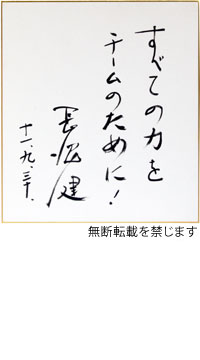 すべての力を
チームのために!
長沼健
十一、九、三十、
無断転載を禁じます